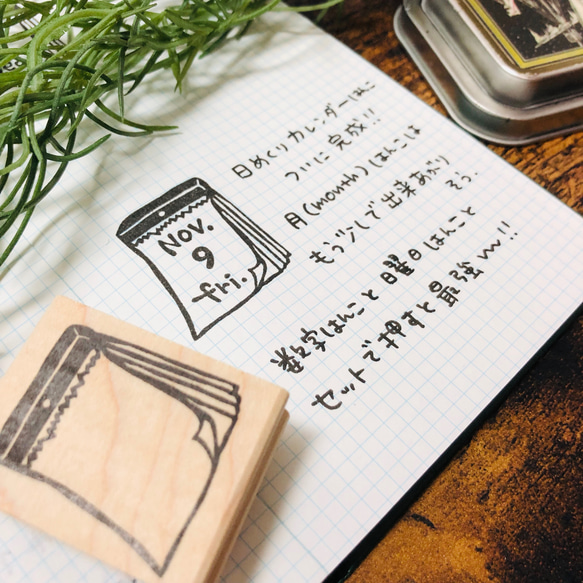 日めくりカレンダーはんこ
ついに完成!!
月(month)はんこは
もう少しで出来あがり
そう.
数字はんこと曜日はんこと
セットで押すと最強〜!!
Nov.
9
fri.